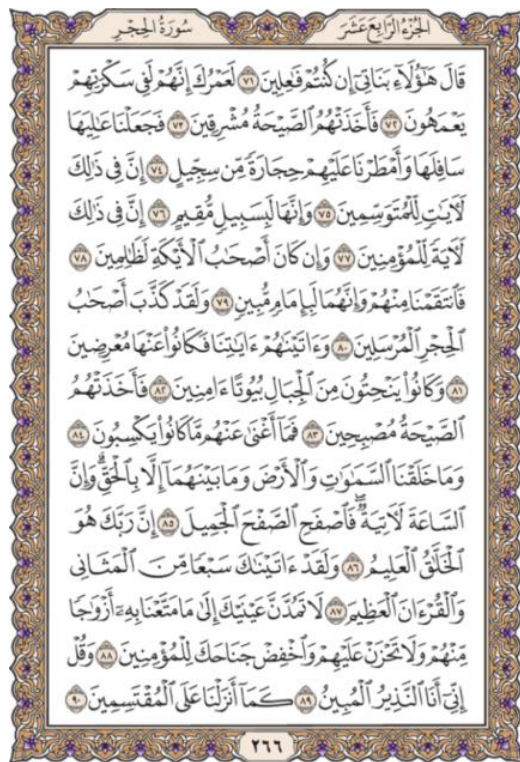 الجُزْءُ الرَّابِعَ عَشَرَ
سُورَةُ الحِجْرِ
قَالَ هَٰٓؤُلَآءِ بَنَاتِيٓ إِن كُنتُمۡ فَٰعِلِينَ ٧١ لَعَمۡرُكَ إِنَّهُمۡ لَفِي سَكۡرَتِهِمۡ
يَعۡمَهُونَ ٧٢ فَأَخَذَتۡهُمُ ٱلصَّيۡحَةُ مُشۡرِقِينَ ٧٣ فَجَعَلۡنَا عَٰلِيَهَا
سَافِلَهَا وَأَمۡطَرۡنَا عَلَيۡهِمۡ حِجَارَةٗ مِّن سِجِّيلٍ ٧٤ إِنَّ فِي ذَٰلِكَ
لَأٓيَٰتٖ لِّلۡمُتَوَسِّمِينَ ٧٥ وَإِنَّهَا لَبِسَبِيلٖ مُّقِيمٍ ٧٦ إِنَّ فِي ذَٰلِكَ
لَأٓيَةٗ لِّلۡمُؤۡمِنِينَ ٧٧ وَإِن كَانَ أَصۡحَٰبُ ٱلۡأَيۡكَةِ لَظَٰلِمِينَ ٧٨
فَٱنتَقَمۡنَا مِنۡهُمۡ وَإِنَّهُمَا لَبِإِمَامٖ مُّبِينٖ ٧٩ وَلَقَدۡ كَذَّبَ أَصۡحَٰبُ
ٱلۡحِجۡرِ ٱلۡمُرۡسَلِينَ ٨٠ وَءَاتَيۡنَٰهُمۡ ءَايَٰتِنَا فَكَانُواْ عَنۡهَا مُعۡرِضِينَ
٨١ وَكَانُواْ يَنۡحِتُونَ مِنَ ٱلۡجِبَالِ بُيُوتًا ءَامِنِينَ ٨٢ فَأَخَذَتۡهُمُ
ٱلصَّيۡحَةُ مُصۡبِحِينَ ٨٣ فَمَآ أَغۡنَىٰ عَنۡهُم مَّا كَانُواْ يَكۡسِبُونَ ٨٤
وَمَا خَلَقۡنَا ٱلسَّمَٰوَٰتِ وَٱلۡأَرۡضَ وَمَا بَيۡنَهُمَآ إِلَّا بِٱلۡحَقِّۗ وَإِنَّ
ٱلسَّاعَةَ لَأٓتِيَةٞۖ فَٱصۡفَحِ ٱلصَّفۡحَ ٱلۡجَمِيلَ ٨٥ إِنَّ رَبَّكَ هُوَ
ٱلۡخَلَّٰقُ ٱلۡعَلِيمُ ٨٦ وَلَقَدۡ ءَاتَيۡنَٰكَ سَبۡعٗا مِّنَ ٱلۡمَثَانِي
وَٱلۡقُرۡءَانَ ٱلۡعَظِيمَ ٨٧ لَا تَمُدَّنَّ عَيۡنَيۡكَ إِلَىٰ مَا مَتَّعۡنَا بِهِۦٓ أَزۡوَٰجٗا
مِّنۡهُمۡ وَلَا تَحۡزَنۡ عَلَيۡهِمۡ وَٱخۡفِضۡ جَنَاحَكَ لِلۡمُؤۡمِنِينَ ٨٨ وَقُلۡ
إِنِّيٓ أَنَا ٱلنَّذِيرُ ٱلۡمُبِينُ ٨٩ كَمَآ أَنزَلۡنَا عَلَى ٱلۡمُقۡتَسِمِينَ ٩٠
٢٦٦